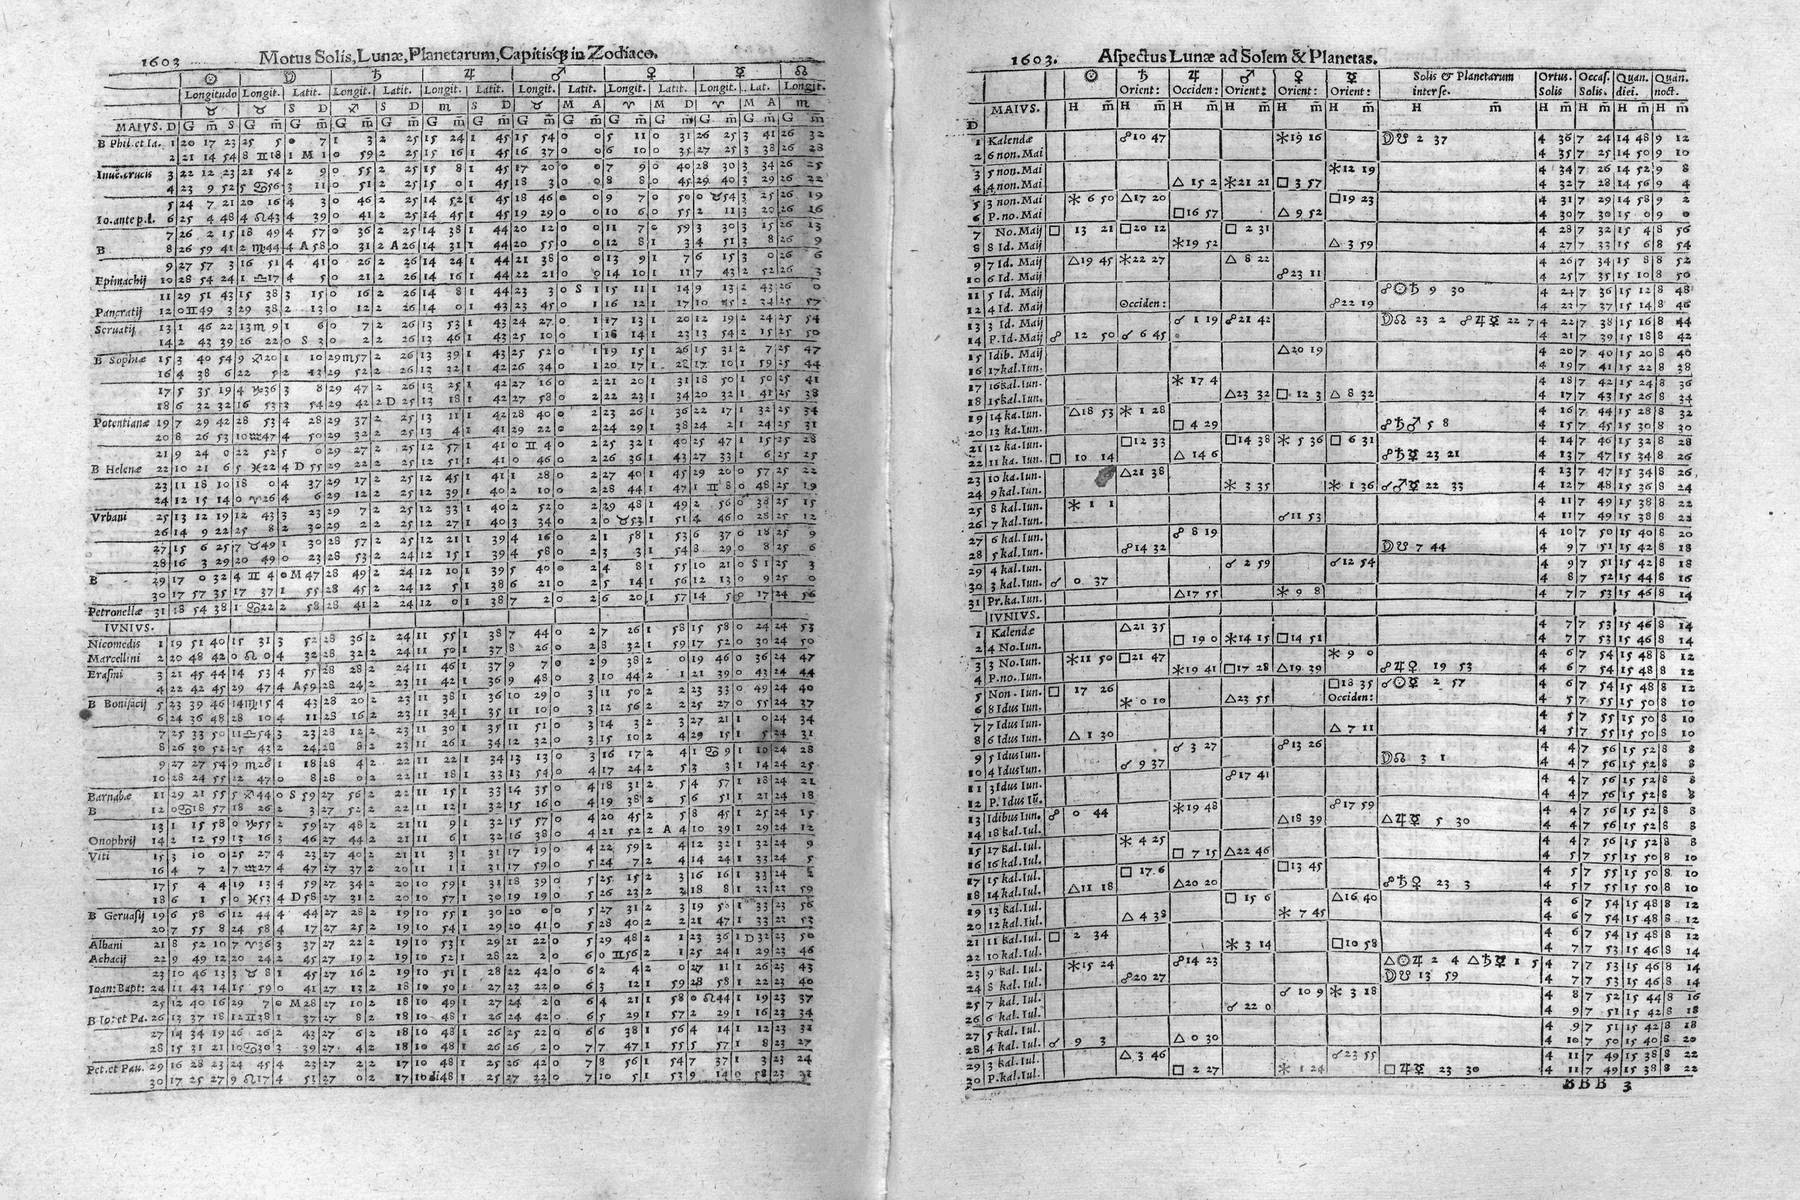 1603 Motus Solis, Lunæ, Planetarum, Capitisq́; in Zodiaco.
☉ ☽ ♄ ♃ ♂ ♀ ☿ ☊
Longitudo Longit. Latit. Longit. Latit. Longit. Latit. Longit. Latit. Longit. Latit. Longit. Lat. Longit.
♉ ♉ S D ♐ S D ♏ S D ♉ M A ♈ M D ♈ M A ♏
MAIVS. D G m̃ S G m̃ G m̃ G m̃ G m̃ G m̃ G m̃ G m̃ G m̃ G m̃ G m̃ G m̃ G m̃ G m̃
B Phil. et Ia. 1 20 17 23 25 5 0 7 1 3 2 25 15 24 1 45 15 54 0 0 5 11 0 31 26 25 3 41 26 32
2 21 14 54 8 ♊ 18 1 M 1 0 59 2 25 15 16 1 45 16 37 0 0 6 10 0 35 27 25 3 38 26 28
Inuē. crucis 3 22 12 23 21 54 2 9 0 55 2 25 15 8 1 45 17 20 0 0 7 9 0 40 28 30 3 34 26 25
4 23 9 52 5 ♋ 56 3 11 0 51 2 25 15 0 1 45 18 3 0 0 8 8 0 45 29 40 3 29 26 22
5 24 7 21 20 16 4 3 0 46 2 25 14 52 1 45 18 46 0 0 9 7 0 50 0 ♉ 54 3 25 26 19
Io. ante p. l. 6 25 4 48 4 ♌ 43 4 39 0 41 2 25 14 45 1 45 19 29 0 0 10 6 0 55 2 11 3 20 26 16
7 26 2 15 18 49 4 57 0 36 2 25 14 38 1 44 20 12 0 0 11 7 0 59 3 30 3 15 26 13
B 8 26 59 41 2 ♍ 44 4 A 58 0 31 2 A 26 14 31 1 44 20 55 0 0 12 8 1 3 4 51 3 8 26 9
9 27 57 3 16 51 4 41 0 26 2 26 14 24 1 44 21 38 0 0 13 9 1 7 6 15 3 0 26 6
Epimachij 10 28 54 24 1 ♎ 17 4 5 0 21 2 26 14 16 1 44 22 21 0 0 14 10 1 11 7 43 2 52 26 3
11 29 51 43 15 38 3 15 0 16 2 26 14 8 1 44 23 3 0 S 1 15 11 1 14 9 13 2 43 26 0
Pancratij 12 0 ♊ 49 3 29 38 2 13 0 12 2 26 14 0 1 43 23 45 0 1 16 12 1 17 10 45 2 34 25 57
Seruatij 13 1 46 22 13 ♏ 9 1 6 0 7 2 26 13 53 1 43 24 27 0 1 17 13 1 20 12 19 2 24 25 54
14 2 43 39 26 22 0 S 3 0 2 2 26 13 46 1 43 25 10 0 1 18 14 1 23 13 54 2 15 25 50
B Sophiæ 15 3 40 54 9 ♐ 20 1 10 29 ♏ 57 2 26 13 39 1 43 25 52 0 1 19 15 1 26 15 31 2 7 25 47
16 4 38 6 22 5 2 13 29 52 2 26 13 32 1 42 26 34 0 1 20 17 1 28 17 10 1 59 25 44
17 5 35 19 4 ♑ 36 3 8 29 47 2 26 13 25 1 42 27 16 0 2 21 20 1 31 18 50 1 50 25 41
18 6 32 32 16 53 3 54 29 42 2 D 25 13 18 1 42 27 58 0 2 22 23 1 34 20 32 1 41 25 38
Potentianæ 19 7 29 42 28 53 4 28 29 37 2 25 13 11 1 42 28 40 0 2 23 26 1 36 22 17 1 32 25 34
20 8 26 53 10 ♒ 47 4 50 29 32 2 25 13 4 1 41 29 22 0 2 24 29 1 38 24 2 1 24 25 31
21 9 24 0 22 52 5 0 29 27 2 25 12 57 1 41 0 ♊ 4 0 2 25 32 1 40 25 47 1 15 25 28
B Helenæ 22 10 21 6 5 ♓ 22 4 D 55 29 22 2 25 12 51 1 41 0 46 0 2 26 36 1 43 27 33 1 6 25 25
23 11 18 10 18 0 4 37 29 17 2 25 12 45 1 41 1 28 0 2 27 40 1 45 29 20 0 57 25 22
24 12 15 14 0 ♈ 26 4 6 29 12 2 25 12 39 1 40 2 10 0 2 28 44 1 47 1 ♊ 8 0 48 25 19
Vrbani 25 13 12 19 12 43 3 23 29 7 2 25 12 33 1 40 2 52 0 2 29 48 1 49 2 56 0 38 25 15
26 14 9 22 25 8 2 30 29 2 2 25 12 27 1 40 3 34 0 2 0 ♉ 53 1 51 4 46 0 28 25 12
27 15 6 25 7 ♉ 49 1 30 28 57 2 25 12 21 1 39 4 16 0 2 1 58 1 53 6 37 0 18 25 9
28 16 3 29 20 49 0 23 28 53 2 24 12 15 1 39 4 58 0 2 3 3 1 54 8 29 0 8 25 6
B 29 17 0 32 4 ♊ 4 0 M 47 28 49 2 24 12 10 1 39 5 40 0 2 4 8 1 55 10 21 0 S 1 25 3
30 17 57 35 17 37 1 55 28 45 2 24 12 5 1 38 6 21 0 2 5 14 1 56 12 13 0 9 25 0
Petronellæ 31 18 54 38 1 ♋ 22 2 58 28 41 2 24 12 0 1 38 7 2 0 2 6 20 1 57 14 5 0 17 24 56
IVNIVS.
Nicomedis 1 19 51 40 15 31 3 52 28 36 2 24 11 55 1 38 7 44 0 2 7 26 1 58 15 58 0 24 24 53
Marcellini 2 20 48 42 0 ♌ 0 4 32 28 32 2 24 11 50 1 37 8 26 0 2 8 32 1 59 17 52 0 30 24 50
Erasmi 3 21 45 44 14 53 4 55 28 28 2 24 11 46 1 37 9 7 0 2 9 38 2 0 19 46 0 36 24 47
4 22 42 45 29 47 4 A 59 28 24 2 23 11 42 1 36 9 48 0 3 10 44 2 1 21 39 0 43 24 44
B Bonifacij 5 23 39 46 14 ♍ 15 4 43 28 20 2 23 11 38 1 36 10 29 0 3 11 50 2 2 23 33 0 49 24 40
6 24 36 48 28 10 4 11 28 16 2 23 11 34 1 35 11 10 0 3 12 56 2 2 25 27 0 55 24 37
7 25 33 50 11 ♎ 54 3 23 28 12 2 23 11 30 1 35 11 51 0 3 14 3 2 3 27 21 1 0 24 34
8 26 30 52 25 42 2 24 28 8 2 23 11 26 1 34 12 32 0 3 15 10 2 4 29 15 1 5 24 31
9 27 27 54 9 ♏ 26 1 18 28 4 2 22 11 22 1 34 13 13 0 3 16 17 2 4 1 ♋ 9 1 10 24 28
10 28 24 55 12 47 0 8 28 0 2 22 11 18 1 33 13 54 0 4 17 24 2 5 3 3 1 14 24 25
Barnabæ 11 29 21 55 5 ♐ 44 0 S 59 27 56 2 22 11 15 1 33 14 35 0 4 18 31 2 5 4 57 1 18 24 21
B 12 0 ♋ 18 57 18 26 2 3 27 52 2 22 11 12 1 32 15 16 0 4 19 38 2 5 6 51 1 21 24 18
13 1 15 58 0 ♑ 55 2 59 27 48 2 21 11 9 1 32 15 57 0 4 20 45 2 5 8 45 1 25 24 15
Onophrij 14 2 12 59 13 16 3 46 27 44 2 21 11 6 1 32 16 38 0 4 21 52 2 A 4 10 39 1 29 24 12
Viti 15 3 10 0 25 27 4 23 27 40 2 21 11 3 1 31 17 19 0 4 22 59 2 4 12 32 1 32 24 9
16 4 7 2 7 ♒ 27 4 47 27 37 2 20 11 1 1 31 17 59 0 5 24 7 2 4 14 24 1 33 24 5
17 5 4 4 19 13 4 59 27 34 2 20 10 59 1 31 18 39 0 5 25 15 2 3 16 16 1 33 24 2
18 6 1 5 0 ♓ 53 4 D 58 27 31 2 20 10 57 1 30 19 19 0 5 26 23 2 2 18 8 1 33 23 59
B Geruasij 19 6 58 6 12 44 4 44 27 28 2 19 10 55 1 30 20 0 0 5 27 31 2 3 19 50 1 33 23 56
20 7 55 8 24 58 4 17 27 25 2 19 10 54 1 29 20 41 0 5 28 40 2 2 21 47 1 33 23 53
Albani 21 8 52 10 7 ♈ 36 3 37 27 22 2 19 10 53 1 29 21 22 0 5 29 48 2 1 23 36 1 D 32 23 50
Achacij 22 9 49 12 20 24 2 45 27 19 2 19 10 52 1 28 22 2 0 6 0 ♊ 56 2 1 25 24 1 29 23 46
23 10 46 13 3 ♉ 8 1 45 27 16 2 19 10 51 1 28 22 42 0 6 2 4 2 0 27 11 1 26 23 43
Ioan: Bapt: 24 11 43 14 15 59 0 41 27 13 2 18 10 50 1 27 23 22 0 6 3 12 1 59 28 58 1 23 23 40
25 12 40 16 29 7 0 M 28 27 10 2 18 10 49 1 27 24 2 0 6 4 21 1 58 0 ♌ 44 1 19 23 37
B Io: et Pa. 26 13 37 18 12 ♊ 38 1 37 27 8 2 18 10 48 1 26 24 42 0 6 5 29 1 57 2 29 1 16 23 34
27 14 34 19 26 26 2 43 27 6 2 18 10 48 1 26 25 22 0 6 6 38 1 56 4 14 1 12 23 31
28 15 31 21 10 ♋ 30 3 39 27 4 2 18 10 48 1 26 26 2 0 7 7 47 1 55 5 57 1 8 23 27
Pet. et Pau. 29 16 28 23 24 45 4 23 27 2 2 17 10 48 1 25 26 42 0 7 8 56 1 54 7 37 1 3 23 24
30 17 25 27 9 ♌ 17 4 53 27 0 2 17 10 di 48 1 25 27 22 0 7 10 5 1 53 9 14 0 58 23 21
1603. Aſpectus Lunæ ad Solem & Planetas.
☉ ♄ ♃ ♂ ♀ ☿ Solis & Planetarum Ortus. Occaſ. Quan. Quan.
Orient: Occiden: Orient: Orient: Orient: inter ſe. Solis Solis. diei. noct.
MAIVS. H m̃ H m̃ H m̃ H m̃ H m̃ H m̃ H m̃ H m̃ H m̃ H m̃ H m̃
D
1 Kalendæ ☍ 10 47 ⚹ 19 16 ☽☋ 2 37 4 36 7 24 14 48 9 12
2 6 non. Mai 4 35 7 25 14 50 9 10
3 5 non. Mai ⚹ 12 19 4 34 7 26 14 52 9 8
4 4 non. Mai △ 15 2 ⚹ 21 21 □ 3 57 4 32 7 28 14 56 9 4
5 3 non. Mai ⚹ 6 50 △ 17 20 □ 19 23 4 31 7 29 14 58 9 2
6 P. no. Mai □ 16 57 △ 9 52 4 30 7 30 15 0 9 0
7 No. Maij □ 13 21 □ 20 12 □ 2 31 4 28 7 32 15 4 8 56
8 8 Id. Maij ⚹ 19 52 △ 3 59 4 27 7 33 15 6 8 54
9 7 Id. Maij △ 19 45 ⚹ 22 27 △ 8 22 4 26 7 34 15 8 8 52
10 6 Id. Maij ☍ 23 11 4 25 7 35 15 10 8 50
11 5 Id. Maij ☍☉♄ 9 30 4 24 7 36 15 12 8 48
12 4 Id. Maij Occiden: ☍ 22 19 4 23 7 37 15 14 8 46
13 3 Id. Maij ☌ 1 19 ☍ 21 42 ☽☊ 23 2 ☍♃☿ 22 7 4 22 7 38 15 16 8 44
14 P. Id. Maij ☍ 12 50 ☌ 6 45 4 21 7 39 15 18 8 42
15 Idib. Maij △ 20 19 4 20 7 40 15 20 8 40
16 17 kal. Iun. 4 19 7 41 15 22 8 38
17 16 kal. Iun. ⚹ 17 4 4 18 7 42 15 24 8 36
18 15 kal. Iun. △ 23 32 □ 12 3 △ 8 32 4 17 7 43 15 26 8 34
19 14 ka. Iun. △ 18 53 ⚹ 1 28 4 16 7 44 15 28 8 32
20 13 ka. Iun. □ 4 29 ☍♄♂ 5 8 4 15 7 45 15 30 8 30
21 12 ka. Iun. □ 12 33 □ 14 38 ⚹ 5 36 □ 6 31 4 14 7 46 15 32 8 28
22 11 ka. Iun. □ 10 14 △ 14 6 ☍♄☿ 23 21 4 13 7 47 15 34 8 26
23 10 ka. Iun. △ 21 38 4 13 7 47 15 34 8 26
24 9 kal. Iun. ⚹ 3 35 ⚹ 1 36 ☌♂☿ 22 33 4 12 7 48 15 36 8 24
25 8 kal. Iun. ⚹ 1 1 4 11 7 49 15 38 8 22
26 7 kal. Iun. ☌ 11 53 4 11 7 49 15 38 8 22
27 6 kal. Iun. ☍ 8 19 4 10 7 50 15 40 8 20
28 5 kal. Iun. ☍ 14 32 ☽☋ 7 44 4 9 7 51 15 42 8 18
29 4 kal. Iun. ☌ 2 59 ☌ 12 54 4 9 7 51 15 42 8 18
30 3 kal. Iun. ☌ 0 37 4 8 7 52 15 44 8 16
31 Pr. ka. Iun. △ 17 55 ⚹ 9 8 4 7 7 53 15 46 8 14
IVNIVS.
1 Kalendæ △ 21 35 4 7 7 53 15 46 8 14
2 4 No. Iun. □ 19 0 ⚹ 14 15 □ 14 51 4 7 7 53 15 46 8 14
3 3 No. Iun. ⚹ 11 50 □ 21 47 ⚹ 9 0 4 6 7 54 15 48 8 12
4 P. no. Iun. ⚹ 19 41 □ 17 28 △ 19 39 ☍♃♀ 19 53 4 6 7 54 15 48 8 12
5 Non. Iun. □ 17 26 □ 18 35 ☌☉☿ 2 57 4 6 7 54 15 48 8 12
6 8 Idus Iun. ⚹ 0 10 △ 23 55 Occiden: 4 5 7 55 15 50 8 10
7 7 Idus Iun. △ 7 11 4 5 7 55 15 50 8 10
8 6 Idus Iun. △ 1 30 4 5 7 55 15 50 8 10
9 5 Idus Iun. ☌ 3 27 ☍ 13 26 4 4 7 56 15 52 8 8
10 4 Idus Iun. ☌ 9 37 ☽☊ 3 1 4 4 7 56 15 52 8 8
11 3 Idus Iun. ☍ 17 41 4 4 7 56 15 52 8 8
12 P. Idus Iū. 4 4 7 56 15 52 8 8
13 Idibus Iun. ☍ 0 44 ⚹ 19 48 ☍ 17 59 4 4 7 56 15 52 8 8
14 18 kal. Iul. △ 18 39 △♃☿ 5 30 4 4 7 56 15 52 8 8
15 17 kal. Iul. ⚹ 4 25 4 4 7 56 15 52 8 8
16 16 kal. Iul. □ 7 15 △ 22 46 4 5 7 55 15 50 8 10
17 15 kal. Iul. □ 17 6 □ 13 45 4 5 7 55 15 50 8 10
18 14 kal. Iul. △ 11 18 △ 20 20 ☍♄♀ 23 3 4 5 7 55 15 50 8 10
19 13 kal. Iul. □ 15 6 △ 16 40 4 6 7 54 15 48 8 12
20 12 kal. Iul. △ 4 38 ⚹ 7 45 4 6 7 54 15 48 8 12
21 11 kal. Iul. □ 2 34 4 6 7 54 15 48 8 12
22 10 kal. Iul. ⚹ 3 14 □ 10 58 4 7 7 53 15 46 8 14
23 9 kal. Iul. ⚹ 15 24 ☍ 14 23 △☉♃ 2 4 △♄☿ 1 5 4 7 7 53 15 46 8 14
24 8 kal. Iul. ☍ 20 27 ☽☋ 13 59 4 7 7 53 15 46 8 14
25 7 kal. Iul. ☌ 10 9 ⚹ 3 18 4 8 7 52 15 44 8 16
26 6 kal. Iul. ☌ 22 0 4 9 7 51 15 42 8 18
27 5 kal. Iul. 4 9 7 51 15 42 8 18
28 4 kal. Iul. ☌ 9 3 △ 0 30 4 10 7 50 15 40 8 20
29 3 kal. Iul. △ 3 46 ☌ 23 55 4 11 7 49 15 38 8 22
30 P. kal. Iul. □ 2 27 ⚹ 1 24 □♃☿ 23 30 4 11 7 49 15 38 8 22
BBB 3